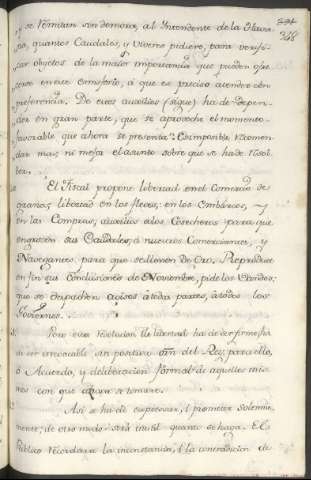 294
268
y se remitan sin demora, al Intendente de la Havana
na, quantos Caudales, y Viveres pidiere, para verifi-
car objetos de la maior importancia que pueden ofre-
cerse en este emisferio, á que es preciso atender con
preferencia. De estos auxilios (sigue) ha de depen-
der en gran parte, que se aproveche el momento
favorable que ahora se presenta. Es imposible recomen-
dar mas ni mejor el asunto sobre que se ha de resol-
ver.
El Fiscal propone libertad en el Comercio de
granos, libertad en los fletes, en los embarcos, y
en las Compras; auxilios a los Cosecheros para que
engrosen sus Caudales, á nuevos Comerciantes, y
Navegantes para que se llenen de Oro. Reproduce
en fin sus conclusiones de Noviembre, pide los Vandos,
que se despachen avisos á todas partes, á todos los
Goviernos.
Pero esta resolucion de libertad ha de ser firme, ha
de ser irrevocable sin positiva orn. del Rey para ello,
ó Acuerdo, y deliberacion formal de aquellos mis-
mos con que ahora se tomare.
Asi se ha de expresar, y prometer solemne-
mente; de otro modo será inutil quanto se haga. El
Publico recordara la inconstancia, y la contradicion de